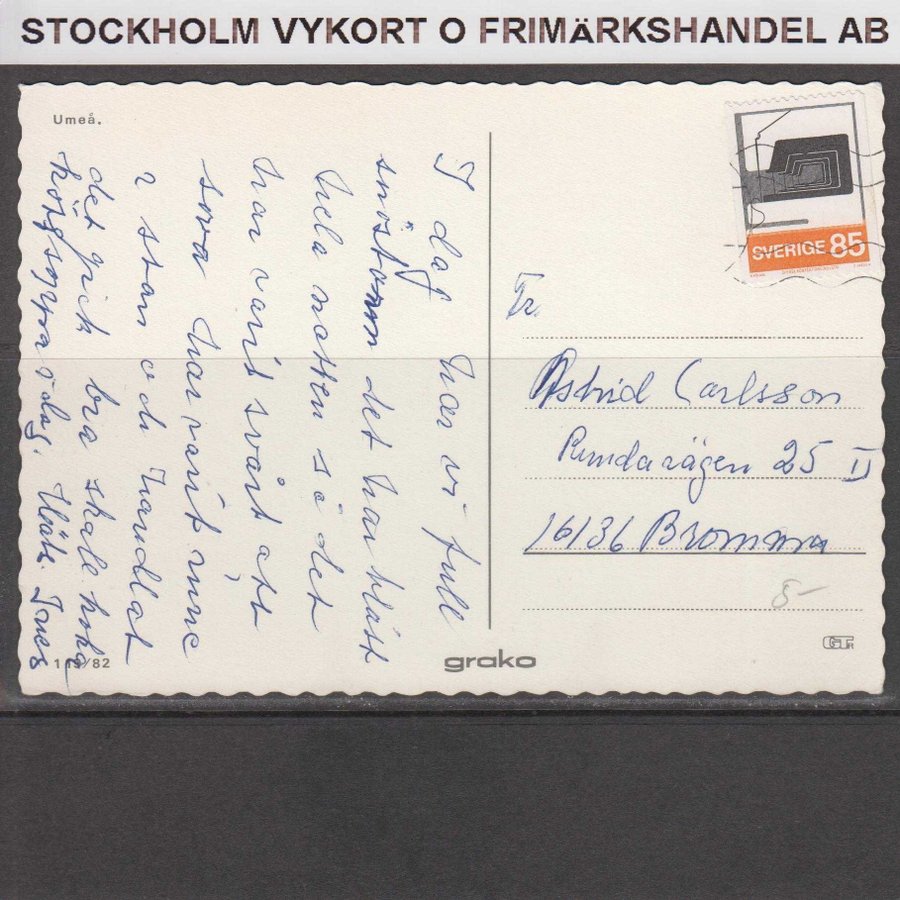 STOCKHOLM VYKORT O FRIMÄRKSHANDEL AB
Umeå.
I dag har vi full
snöstorm det har blåst
hela natten så det
har varit svårt att
sova har varit inne
i stan och handlat
det gick bra skall koka
köttsoppa i dag.
SVERIGE 85
Fr.
Astrid Carlsson
Rundavägen 25 II
16136 Bromma
5-
119/82
grako